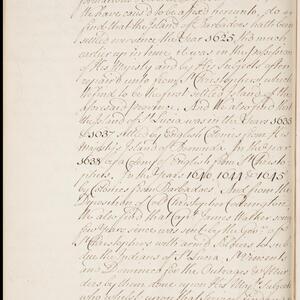 We have caus'd to be
find that the Island of Barbadoes hath been
settled ever since the Year 1625, & is much
in the possession
of His Majesty and by His Subjects often
unto from St Christophers, which
to be the first settled Island of the
aforesaid province. And that also find that
the Island of St Lucia was in the Years 1635
& 1637 settled by English Colonies from His
Majesty's Island of Bermuda. In the Year
1638 of a Colony of English from St Christo-
phers. In the Years 1640 1644 & 1645
by Colonies from Barbadoes. And from the
Deposition of Col Christopher Codrington
We also find that Capt James Walker some
few Years since was sent by the Govr of
St Christophers with armed Sloopes to sub-
due the Indians of St Lucia, St Vincents
and Dominica for the Outrages & Mur-
ders by them done upon His Majtys Subjects
who